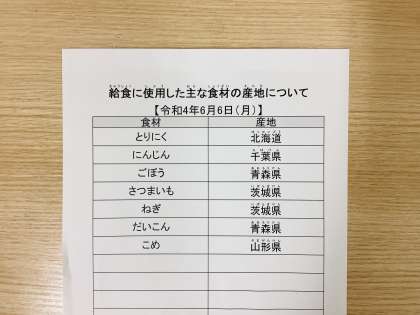 給食に使用した主な食材の産地について
【令和4年6月6日(月)】
食材 産地
とりにく 北海道
にんじん 千葉県
ごぼう 青森県
さつまいも 茨城県
ねぎ 茨城県
だいこん 青森県
こめ 山形県